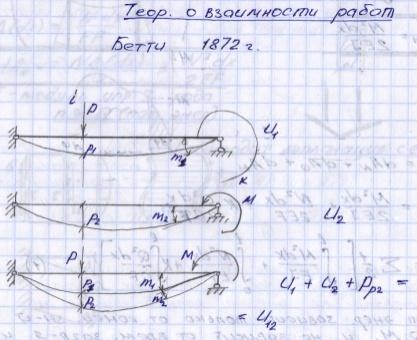 Теор. о взаимности работ
Бетти 1872 г.
i
P
U1
P1
m1
к
M
P2
m2
U2
P
M
P1
m1
P2
m2
U1 + U2 + Pp2 =
= U12